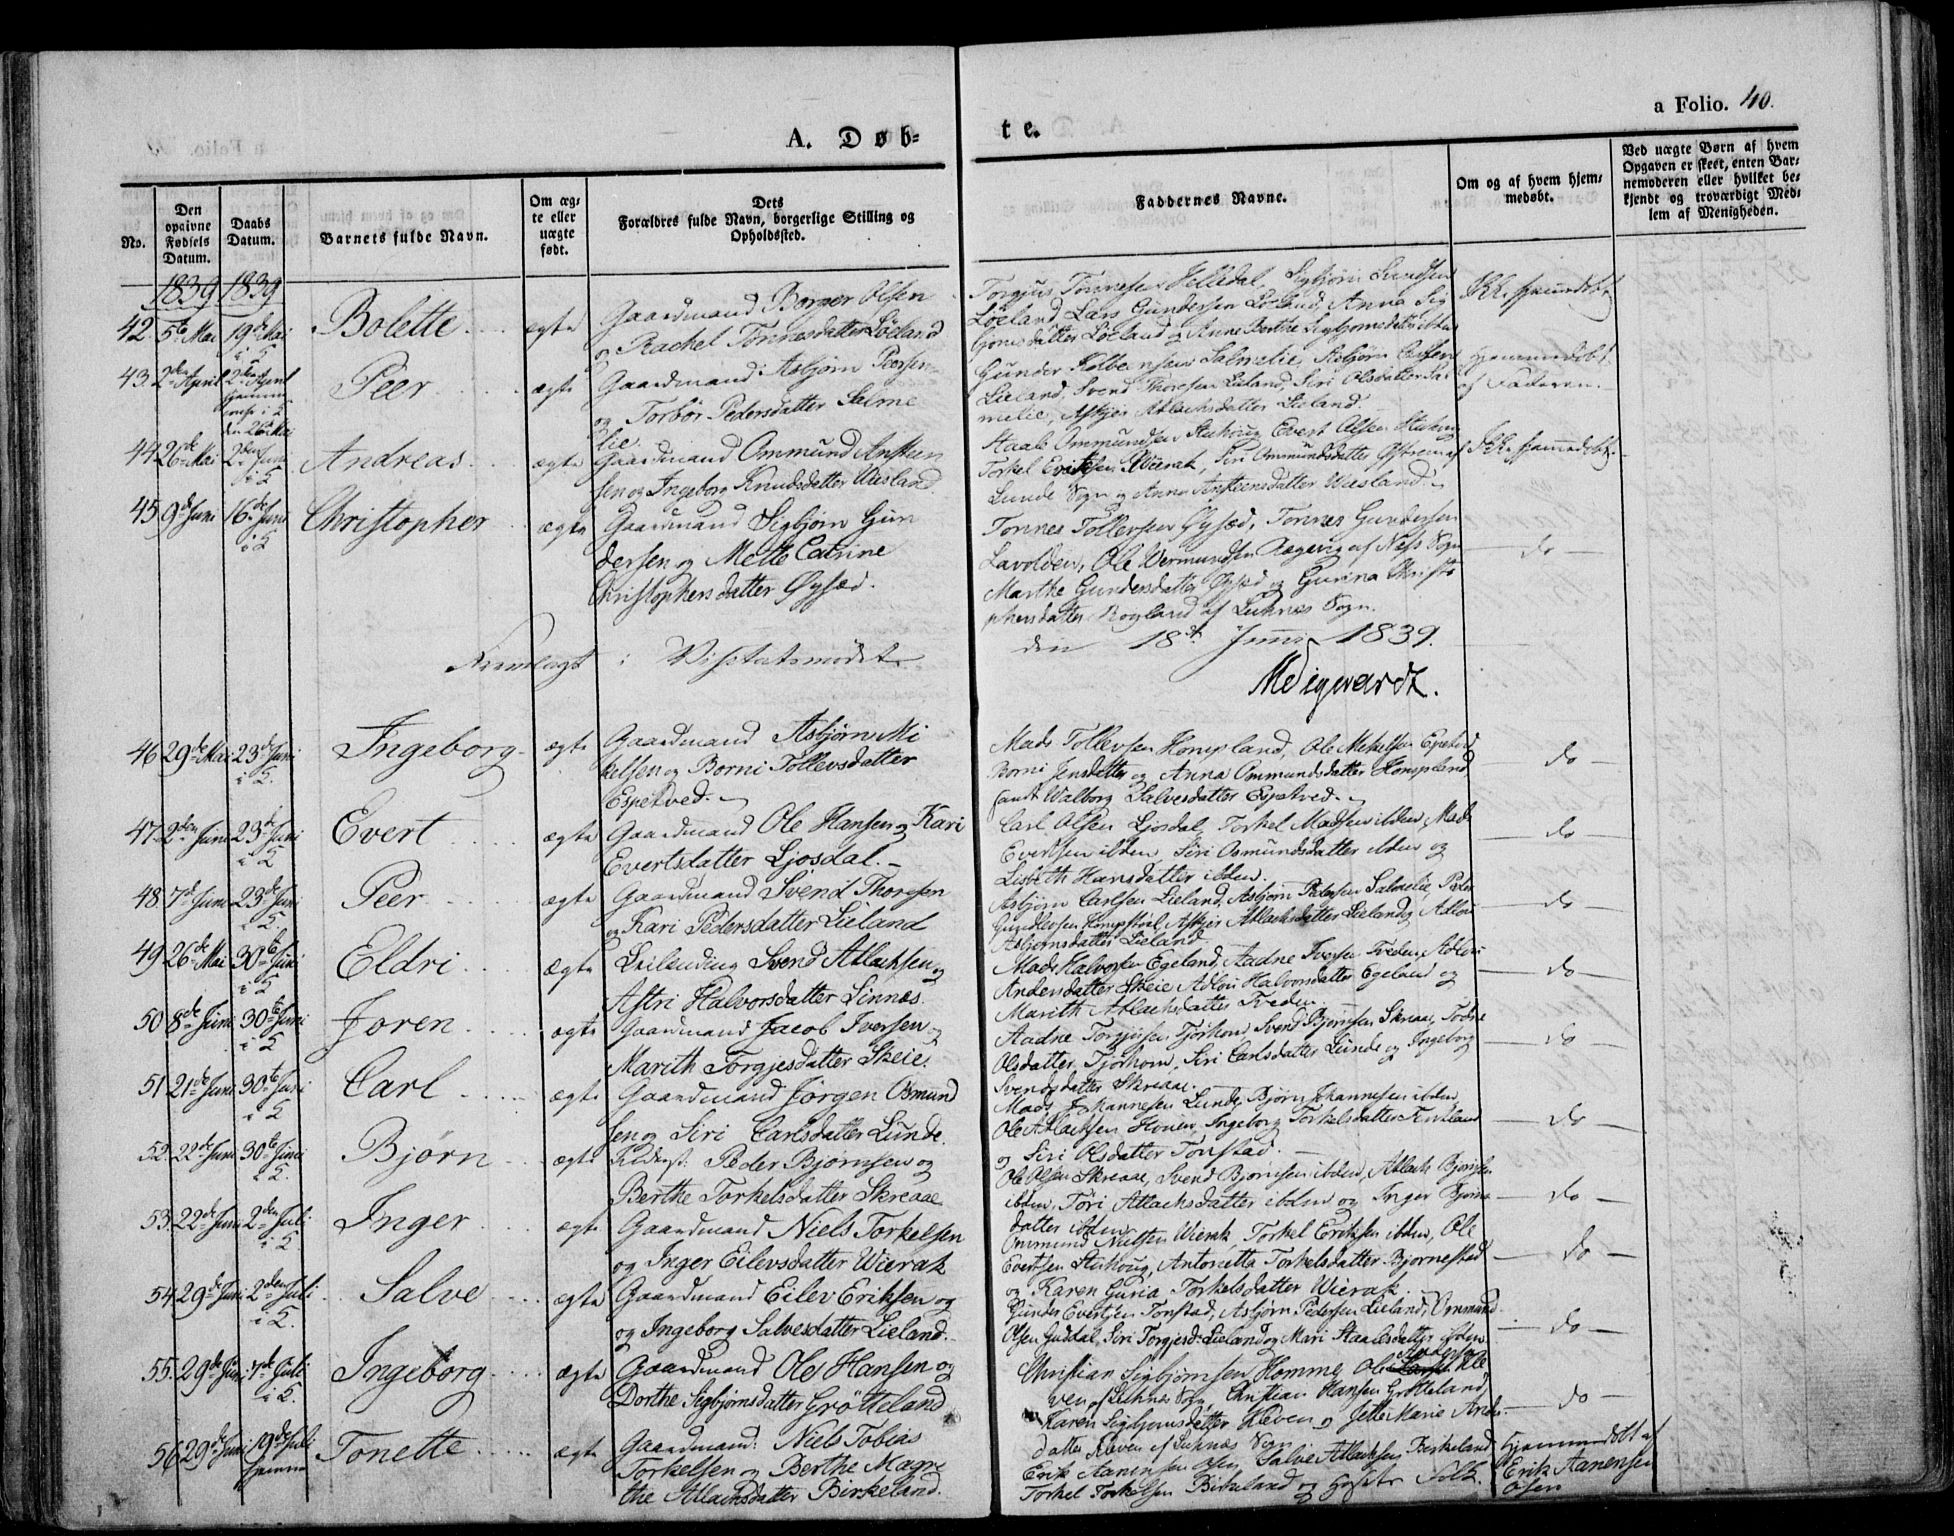 a Folio. 40.
A. Døb=
te.
No.
Den opgivne Fødsels Datum.
Daabs Datum.
Barnets fulde Navn.
Om ægte eller uægte født.
Dets Forældres fulde Navn, borgerlige Stilling og Opholdssted.
Faddernes Navne.
Om og af hvem hjemmedøbt.
Ved uægte Børn af hvem Opgaven er skeet, enten Barnemoderen eller hvilket bekjendt og troværdigt Medlem af Menigheden.
1839 1839
42. 5te Mai 19de Mai i K Bolette ægte
Gaardmand Borger Olsen
og Rachel Tönnesdatter Löeland
Torgjus Tönnesen Helledal, Sigbjörn Svendsen
Löeland, Lars Gundersen Löeland, Anna Sig
björnsdatter Löeland og Anne Berthe Sigbjörnsdatter ibden
Ikke hjemmedöbt
43. 2den April 2den April hjemme i K den 26de Mai Peer ægte
Gaardmand Asbjörn Peersen
og Torbör Pedersdatter Salme
lie
Gunder Kolbensen Salmelie, Asbjörn Carlsen
Lieland, Svend Thoresen Lieland, Siri Olsdatter Sal
melie, Askjer Atlachsdatter Lieland.
Hjemmedöbt
af Faderen.
44 26de Mai 2den Juni i K Andreas ægte
Gaardmand Ommund Ansteen
sen og Ingeborg Knudsdatter Wiesland
Staale Ommundsen Stuhoug, Evert Olsen Stuhoug
Torkel Eriksen Wierak, Siri Ommundsdatter Östrem af
Lunde Sogn og Anna Ansteensdatter Wiesland.
Ikke hjemmedöbt
45 9de Juni 16de Juni i K Christopher ægte
Gaardmand Sigbjörn Gun
dersen og Mette Catrine
Christophersdatter Öysæd.
Tönnes Tollevsen Öysæd, Tönnes Gundersen
Lavolden, Ole Wermundsen Aagevig af Næss Sogn
Marthe Gundersdatter Öysæd og Gurina Christo
phersdatter Rogland af Luhnes Sogn.
do
Fremlagt i Visitatsmödet
den 18de Juni 1839.
46 29de Mai 23de Juni i K. Ingeborg ægte
Gaardmand Asbjörn Mi
kelsen og Borni Tollevsdatter
Espetved.
Mads Tollevsen Hompland, Ole Mikelsen Espetved
Borni Jensdatter og Anna Ommundsdatter Hompland
samt Walborg Salvesdatter Espetved.
do
47 2den Juni 23de Juni i K Evert ægte
Gaardmand Ole Hansen og Kari
Evertsdatter Ljosdal.
Carl Olsen Ljosdal, Torkel Madsen ibden, Mads
Evertsen ibden, Siri Osmundsdatter ibden og
Lisbeth Hansdatter ibden.
do
48 7de Juni 23de Juni i K. Peer ægte
Gaardmand Svend Thoresen
og Kari Pedersdatter Lieland
Asbjörn Carlsen Lieland, Asbjörn Pedersen Salmelie, Peder
Gundersen Hompstöel, Askjer Atlachsdatter Lieland og Adlou
Asbjörnsdatter Lieland
do
49 26de Mai 30te Juni i K Eldri ægte
Leilending Svend Atlachsen og
Astri Halvorsdatter Sinnæs.
Mads Halvorsen Egeland, Aadne Iversen Tveden, Adlou
Andersdatter Skeie, Adlou Halvorsdatter Egeland og
Marith Atlachsdatter Tveden.
do
50 8de Juni 30te Juni i K Joren ægte
Gaardmand Jacob Iversen og
Marith Torgjesdatter Skeie.
Aadne Torgjusen Tjörhom, Svend Björnsen Skreaae, Todne
Olsdatter Tjörhom, Siri Carlsdatter Lunde og Ingeborg
Svendsdatter Skreaae.
do
51 21de Juni 30te Juni i K Carl ægte
Gaardmand Jörgen Osmund
sen og Siri Carlsdatter Lunde.
Mads Johannesen Lunde, Björn Johannesen ibden,
Ole Atlachsen Hoven, Ingeborg Torkelsdatter
og Siri Olsdatter Tonstad.
do
52. 22de Juni 30te Juni i K. Björn ægte
Peder Björnsen og
Berthe Torkelsdatter Skreaae
Ole Olsen Skreaae, Svend Björnsen ibden, Atlach Björnsen
ibden, Töri Atlachsdatter ibden og Inger Björns
datter ibden
do
53. 22de Juni 2den Juli i K Inger ægte
Gaardmand Niels Torkelsen
og Inger Eilevsdatter Wierak
Ommund Nielsen Wierak, Torkel Eriksen ibden, Ole
Evertsen Stuhoug, Antonetta Torkelsdatter Bjornestad
og Karen Guria Torkelsdatter Wierak.
do
54 29de Juni 2den Juli i K. Salve ægte
Gaardmand Eilev Eriksen og
og Ingeborg Salvesdatter Lieland.
Gunder Evertsen Tonstad, Asbjörn Pedersen Lieland, Ommund
Olsen Guddal, Siri Torgjesd: Lieland og Mari Staalesdatter ibden
do
55. 29de Juni 7de Juli i K. Ingeborg ægte
Gaardmand Ole Hansen og
Dorthe Sigbjörnsdatter Grötteland
Christian Sigbjörnsen Homme, Ole Andersen Kle
ven af Luhnes Sogn, Christian Hansen Grötteland,
Karen Sigbjörnsdatter Kleven og Jette Marie Anders
datter Kleven af Luhnes Sogn
do
56 29de Juni 19de Juli hjemme Tonette ægte
Gaardmand: Niels Tobias
Torkelsen og Berthe Magre
the Atlachsdatter Birkeland.
Erik Aanensen Osen, Salve Atlachsen Birkeland
Torkel Torkelsen Birkeland og Huusets Folk.
Hjemmedöbt af
Erik Aanensen
Osen